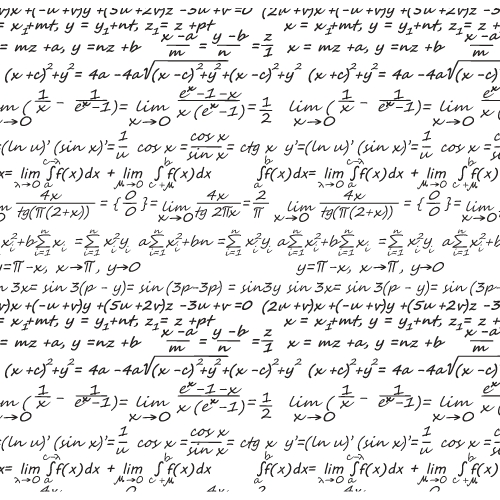 x+(-u+v)y +(5u +2v)z -3u +v =0 (2u +v)x+(-u+v)y +(5u +2v)z -3
= x₁+mt, y = y₁+nt, z₁= z +pt x = x₁+mt, y = y₁+nt, z₁= z +
= mz +a, y =nz +b (x -a)/m = (y -b)/n = z/1 x = mz +a, y =nz +b (x -a)/m
(x +c)²+y²= 4a -4a√(x -c)²+y²+(x -c)²+y² (x +c)²+y²= 4a -4a√(x -c)²
(1/x - 1/(eˣ-1))= lim x→0 (eˣ-1-x)/(x (eˣ-1))=1/2 lim x→0 (1/x - 1/(eˣ-1))= lim x→0
=(ln u)' (sin x)'=1/u cos x =cos x/sin x = ctg x y'=(ln u)' (sin x)'=1/u cos x =
x= lim λ→0 ∫f(x)dx + lim μ→0 ∫f(x)dx ∫f(x)dx= lim λ→0 ∫f(x)dx + lim μ→0 ∫f(x)dx
4x/tg(π(2+x)) = {0/0}=lim x→0 4x/tg 2πx=2/π lim x→0 4x/tg(π(2+x)) = {0/0}=lim x→0
x²+b∑xᵢ =∑xᵢ²yᵢ a∑xᵢ²+bn =∑xᵢ²yᵢ a∑xᵢ²+b∑xᵢ =∑xᵢ²yᵢ a∑xᵢ²
y=π-x, x→π, y→0 y=π-x, x→π, y→0
n 3x= sin 3(p - y)= sin (3p-3p) = sin3y sin 3x= sin 3(p - y)= sin (3p-
x+(-u+v)y +(5u +2v)z -3u +v =0 (2u +v)x+(-u+v)y +(5u +2v)z -3
= x₁+mt, y = y₁+nt, z₁= z +pt x = x₁+mt, y = y₁+nt, z₁= z +
= mz +a, y =nz +b (x -a)/m = (y -b)/n = z/1 x = mz +a, y =nz +b (x -a)/m
(x +c)²+y²= 4a -4a√(x -c)²+y²+(x -c)²+y² (x +c)²+y²= 4a -4a√(x -c)²
(1/x - 1/(eˣ-1))= lim x→0 (eˣ-1-x)/(x (eˣ-1))=1/2 lim x→0 (1/x - 1/(eˣ-1))= lim x→0
=(ln u)' (sin x)'=1/u cos x =cos x/sin x = ctg x y'=(ln u)' (sin x)'=1/u cos x =
x= lim λ→0 ∫f(x)dx + lim μ→0 ∫f(x)dx ∫f(x)dx= lim λ→0 ∫f(x)dx + lim μ→0 ∫f(x)dx